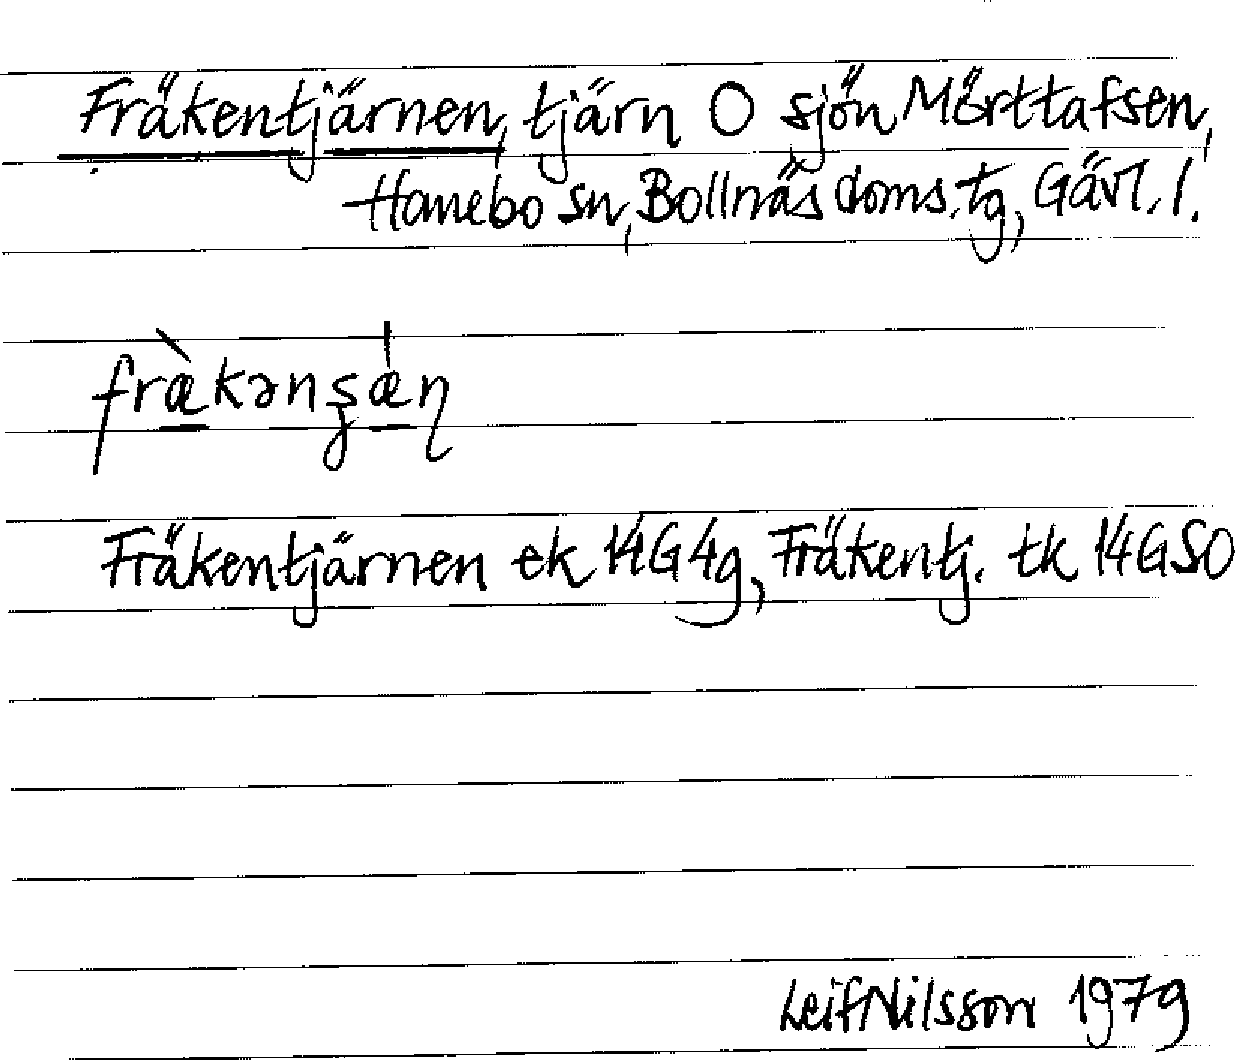 Fräkentjärnen, tjärn O sjön Mörttafsen,
Hanebo sn, Bollnäs doms. tg, Gävl. l.
fræ̀kənʂǽɳ
Fräkentjärnen ek 14G4g, Fräkentj. tk 14GSO
Leif Nilsson 1979